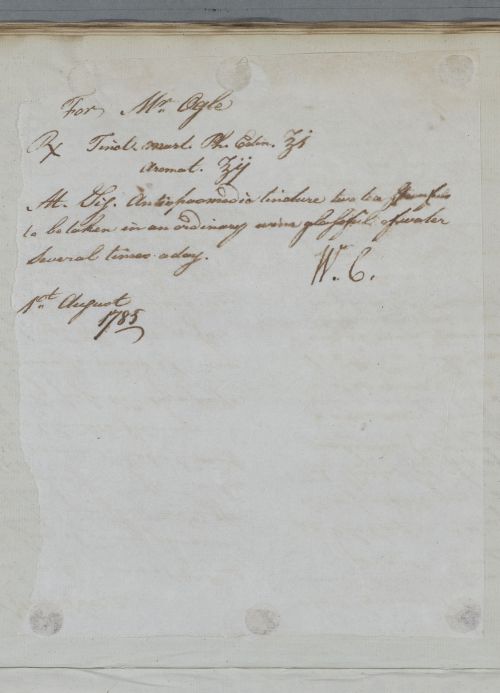 For Mr. Ogle
℞ Tinct. mart. Ph. Edin. ʒj
Aromat. ʒij
M. Sig. Antispasmodic tincture two tea
to be taken in an ordinary wine glassful of water
several times a day.
W. C.
1st. August
1785